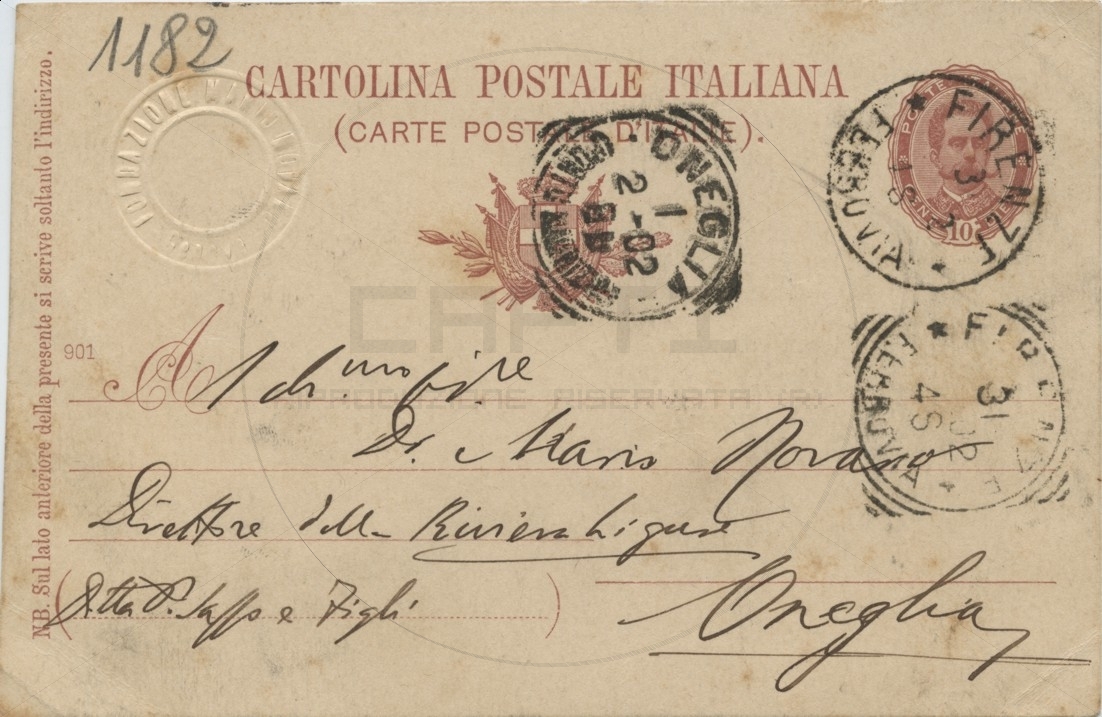 1182
CARTOLINA POSTALE ITALIANA
(CARTE POSTALE D'ITALIE).
FONDAZIONE MARIO NOVARO
ONEGLIA
1
2-02
FIRENZE
FERROVIA
POSTE
10
FIRENZE
FERROVIA
31
02
4S
CAPTI
RIPRODUZIONE RISERVATA (R)
901
A
Dr. Mario Novaro
Direttore della Riviera Ligure
Ditta P. Sasso e Figli
Oneglia
N.B. Sul lato anteriore della presente si scrive soltanto l'indirizzo.